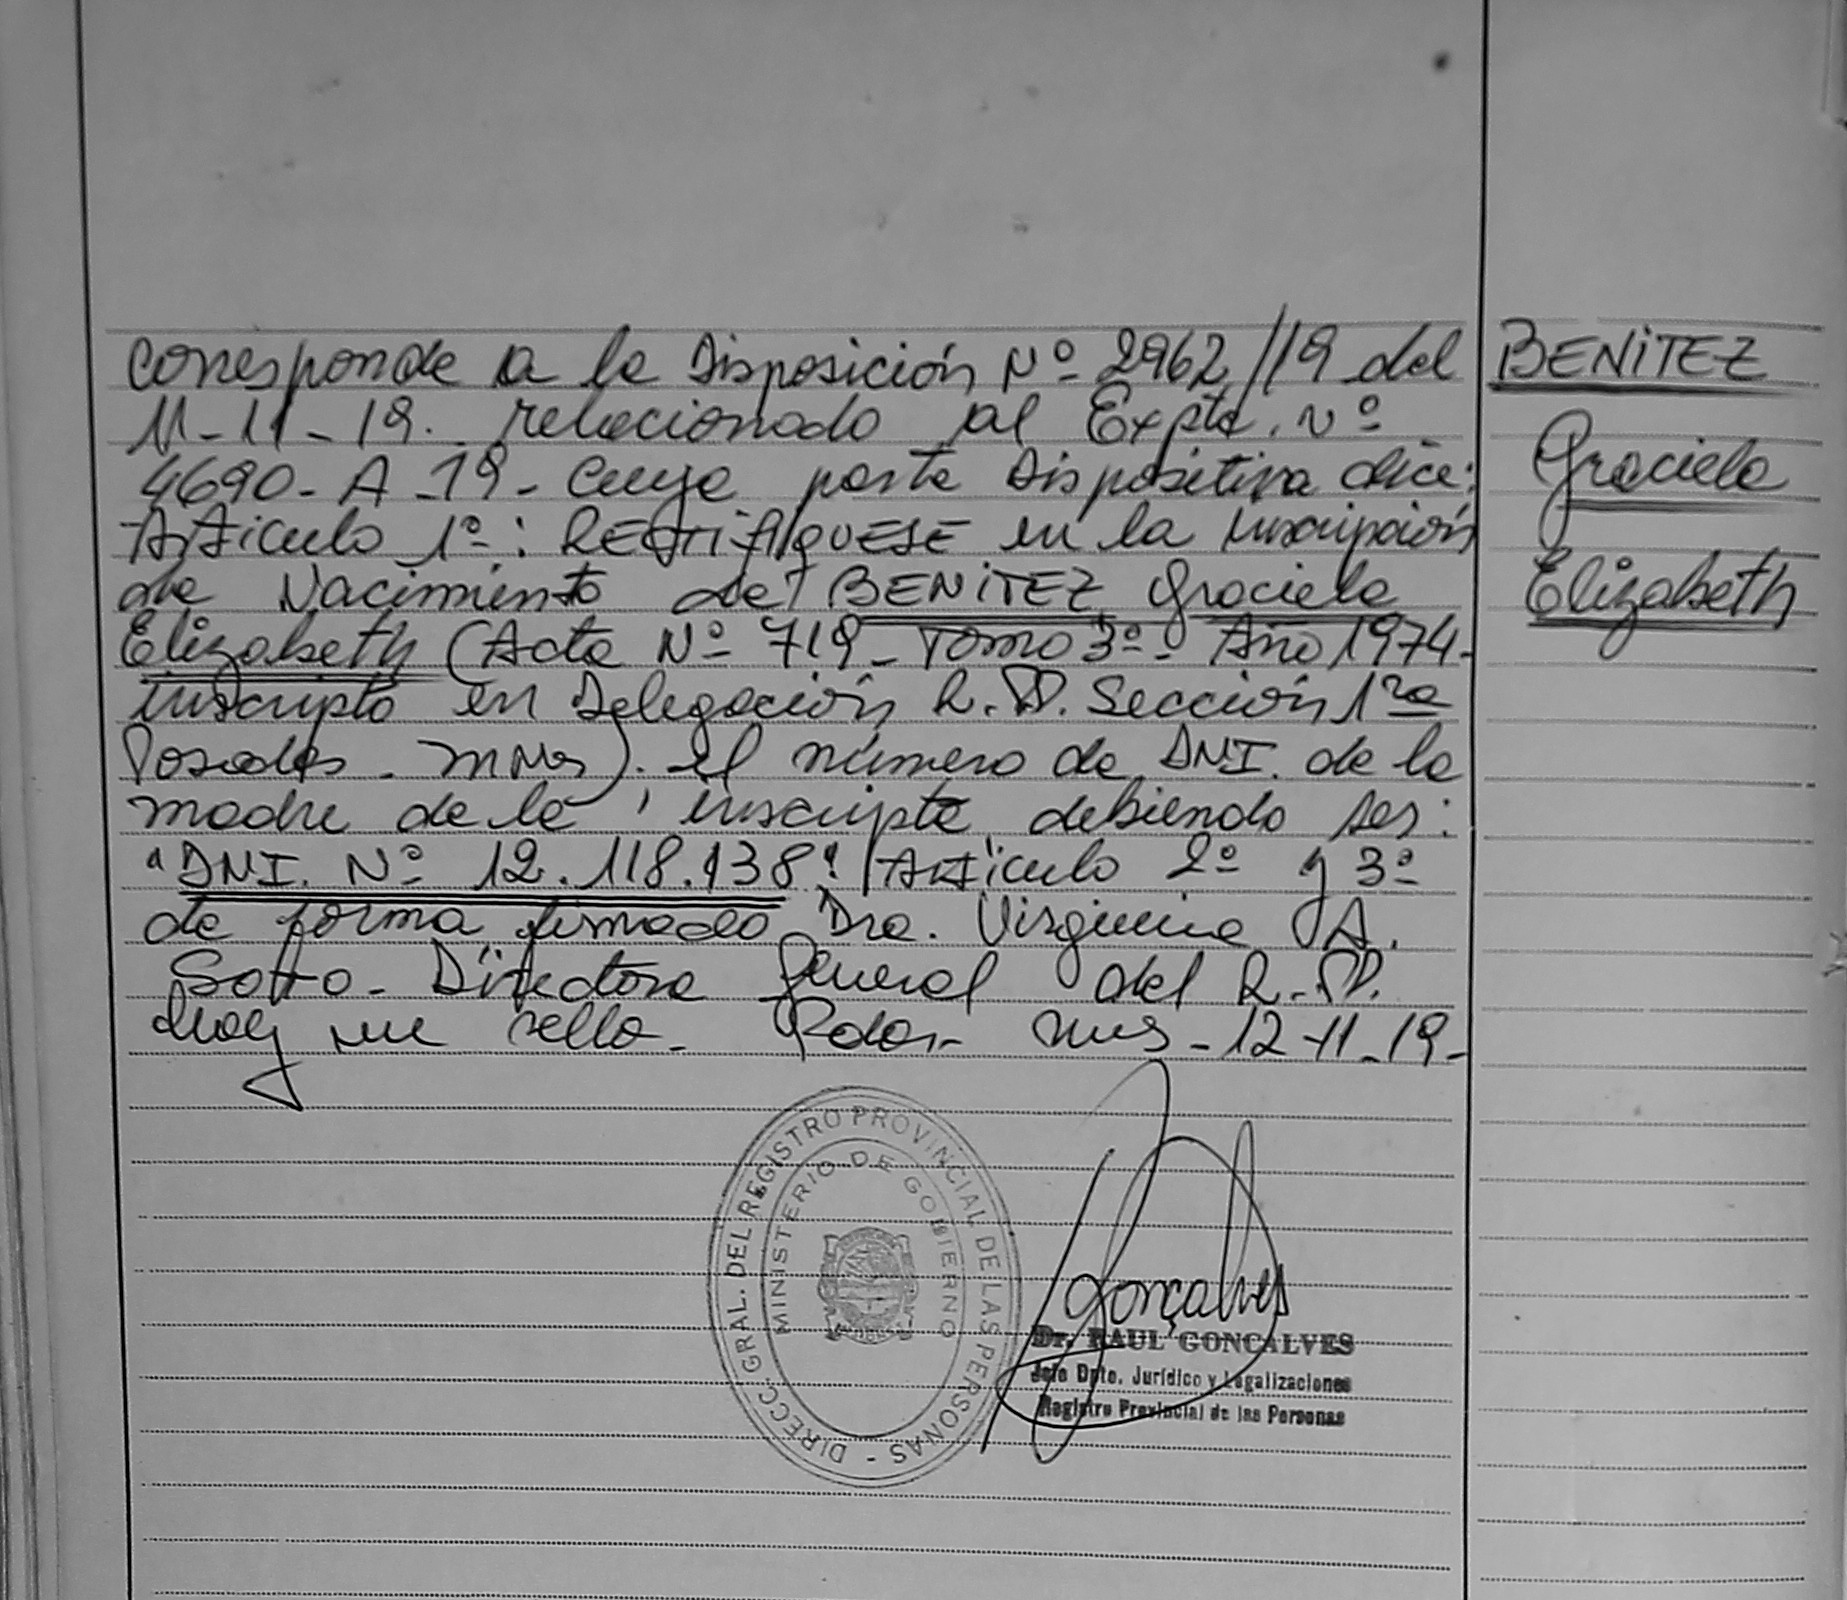 Corresponde a la Disposición Nº 2962/19 del
11-11-19. relacionado al Expte. Nº
4690-A-19- Cuya parte Dispositiva dice:
Artículo 1º: RECTIFIQUESE en la Inscripción
de Nacimiento de BENITEZ Graciela
Elizabeth (Acta Nº 719- Tomo 3º- Año 1974-
inscripto en Delegación R.P. Sección 1ra
Posadas. Mnes). el número de DNI. de la
madre de la inscripta, debiendo ser:
"DNI. Nº 12.118.138" Artículo 2º y 3º
de forma firmado Dra. Virginia A.
Sotto- Directora General del R.P.
Hay un sello- Pdas- Mnes-12-11-19-
BENITEZ
Graciela
Elizabeth
DIRECC. GRAL. DEL REGISTRO PROVINCIAL DE LAS PERSONAS -
MINISTERIO DE GOBIERNO
Gonçalves
Dr. RAUL GONCALVES
Jefe Dpto. Jurídico y Legalizaciones
Registro Provincial de las Personas